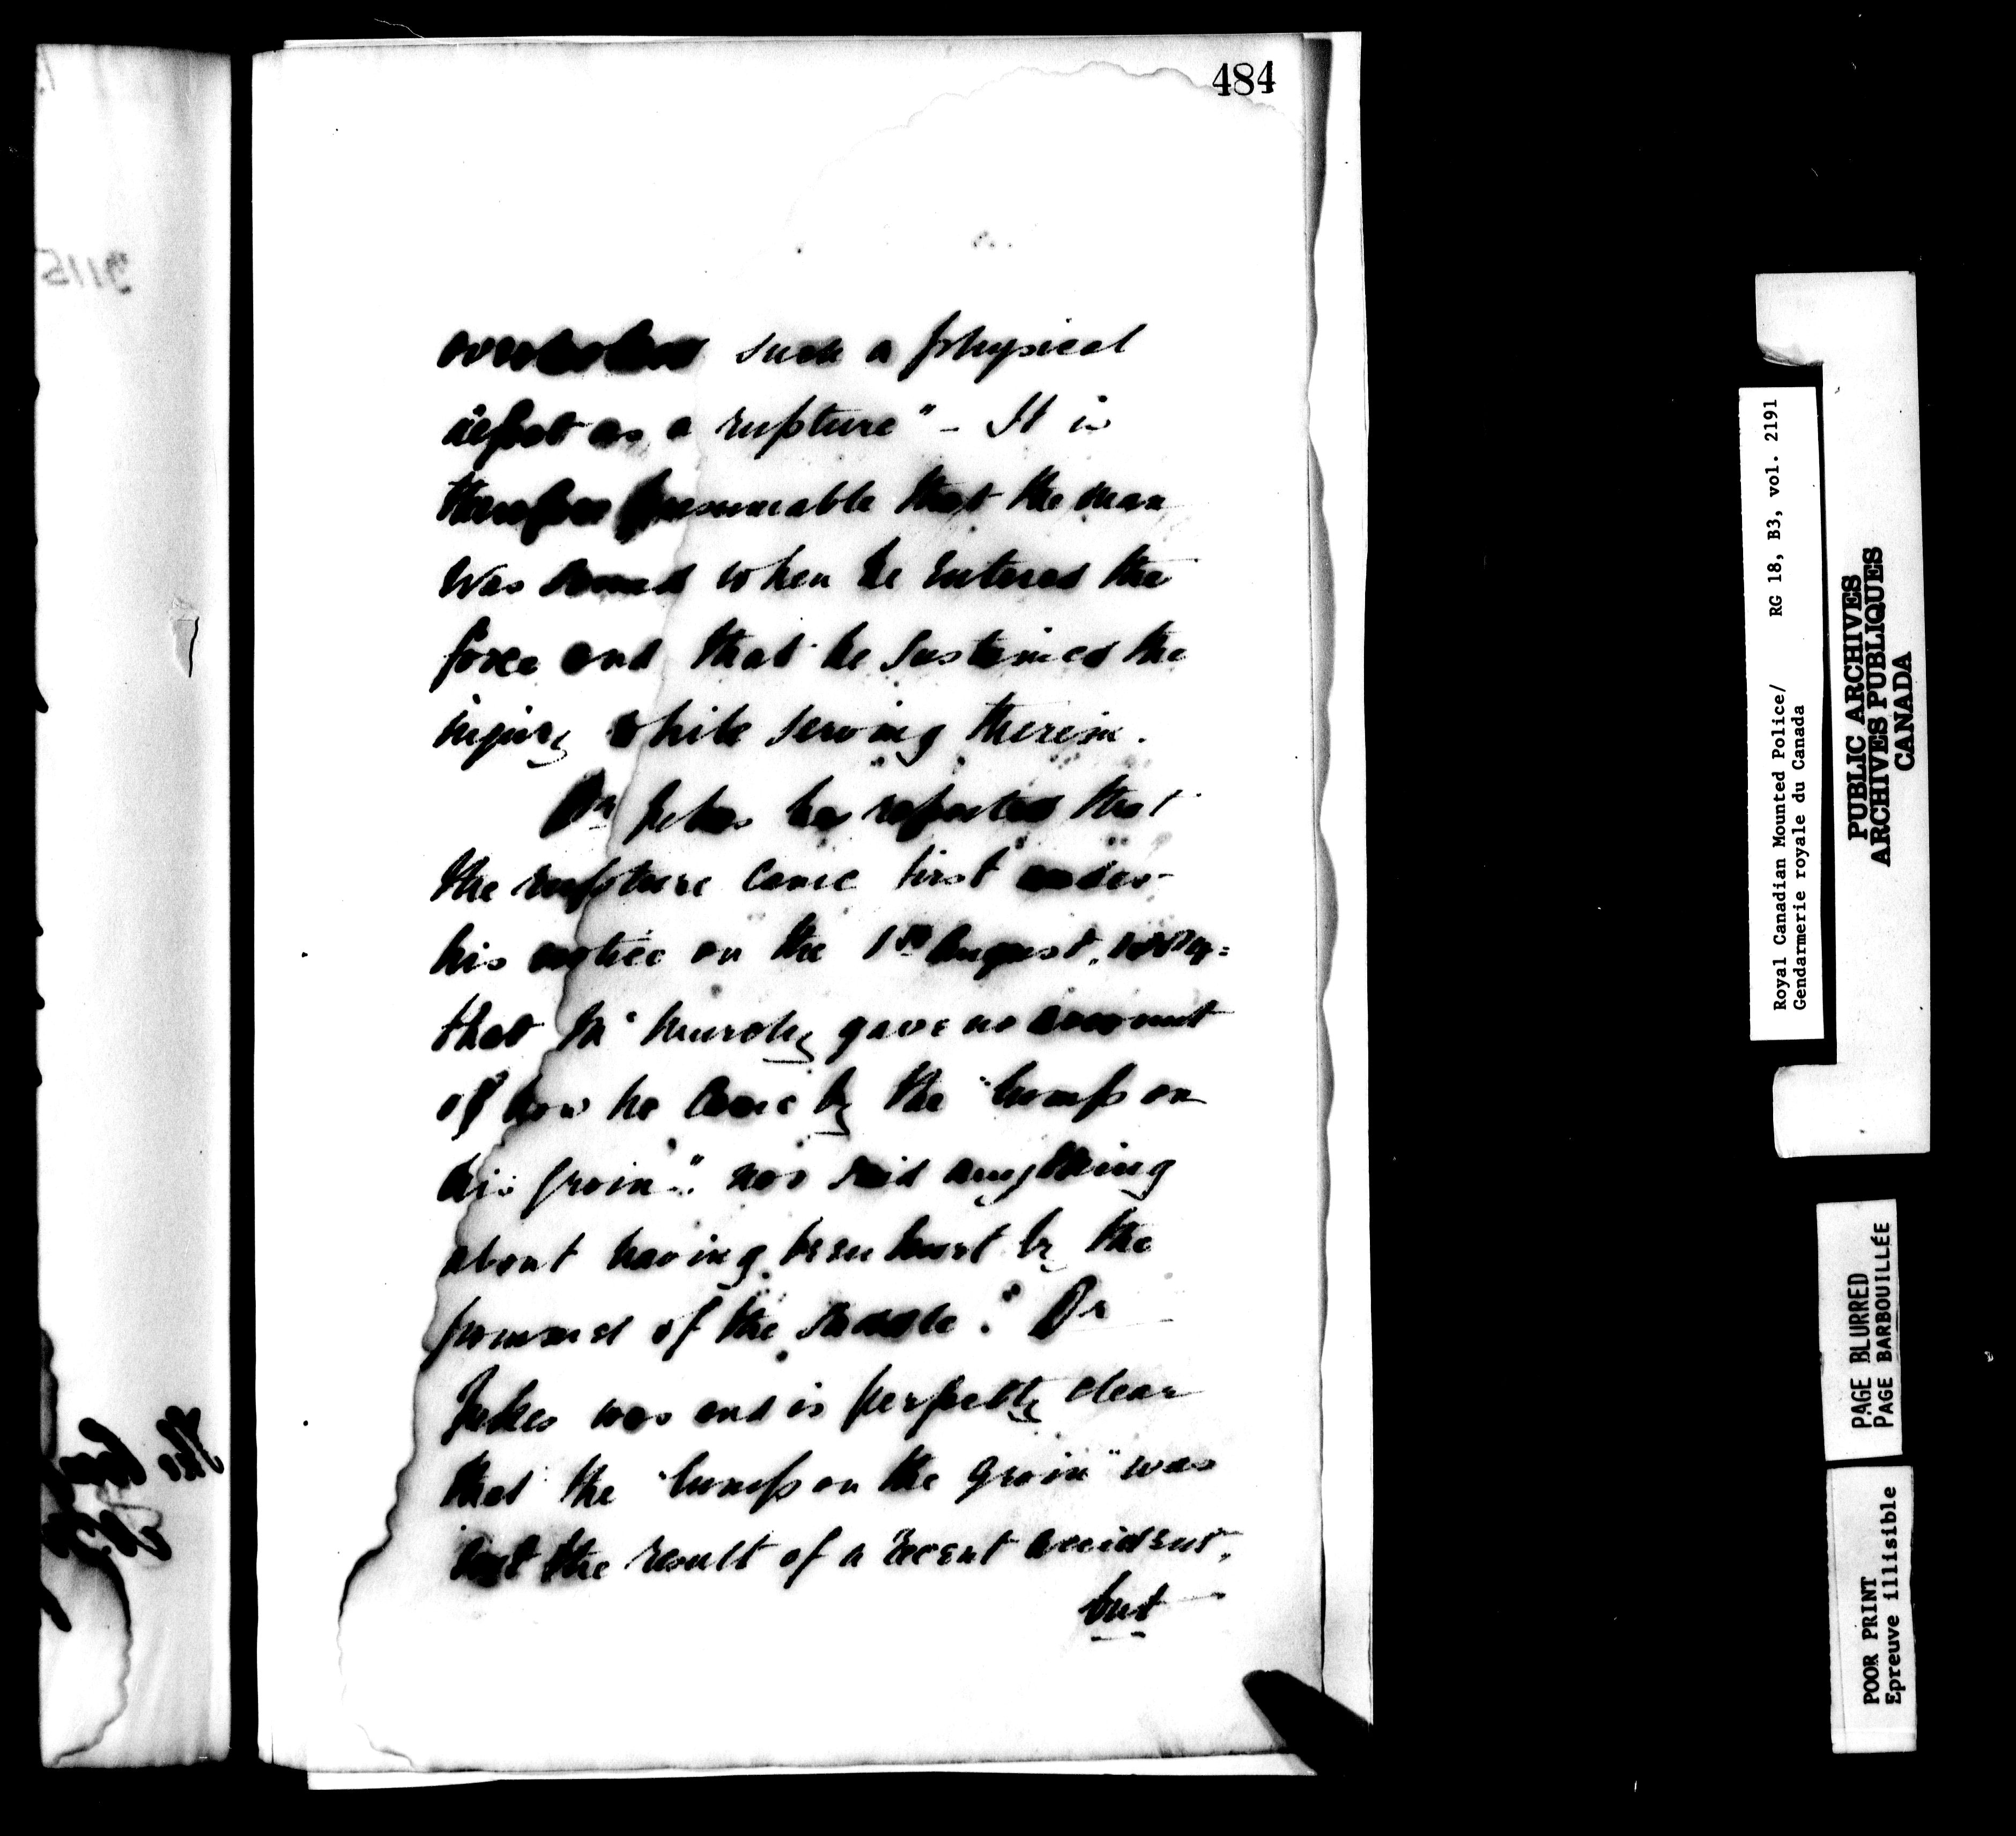 484
overlooked such a physical
defect as a rupture" - It is
therefore presumable that the man
was sound when he entered the
force and that he sustained the
injury while serving therein.
Dr Jukes has reported that
the rupture came first under
his notice on the 1st August,
that Mc Murchy gave no account
of how he came by the "lump on
his groin" nor said anything
about having been hurt by the
pommel of the saddle. Dr
Jukes was and is perfectly clear
that the "lump on the groin" was
not the result of a recent accident,
but
Royal Canadian Mounted Police/ RG 18, B3, vol. 2191
Gendarmerie royale du Canada
PUBLIC ARCHIVES
ARCHIVES PUBLIQUES
CANADA
PAGE BLURRED
PAGE BARBOUILLÉE
POOR PRINT
Epreuve illisible
3115
The